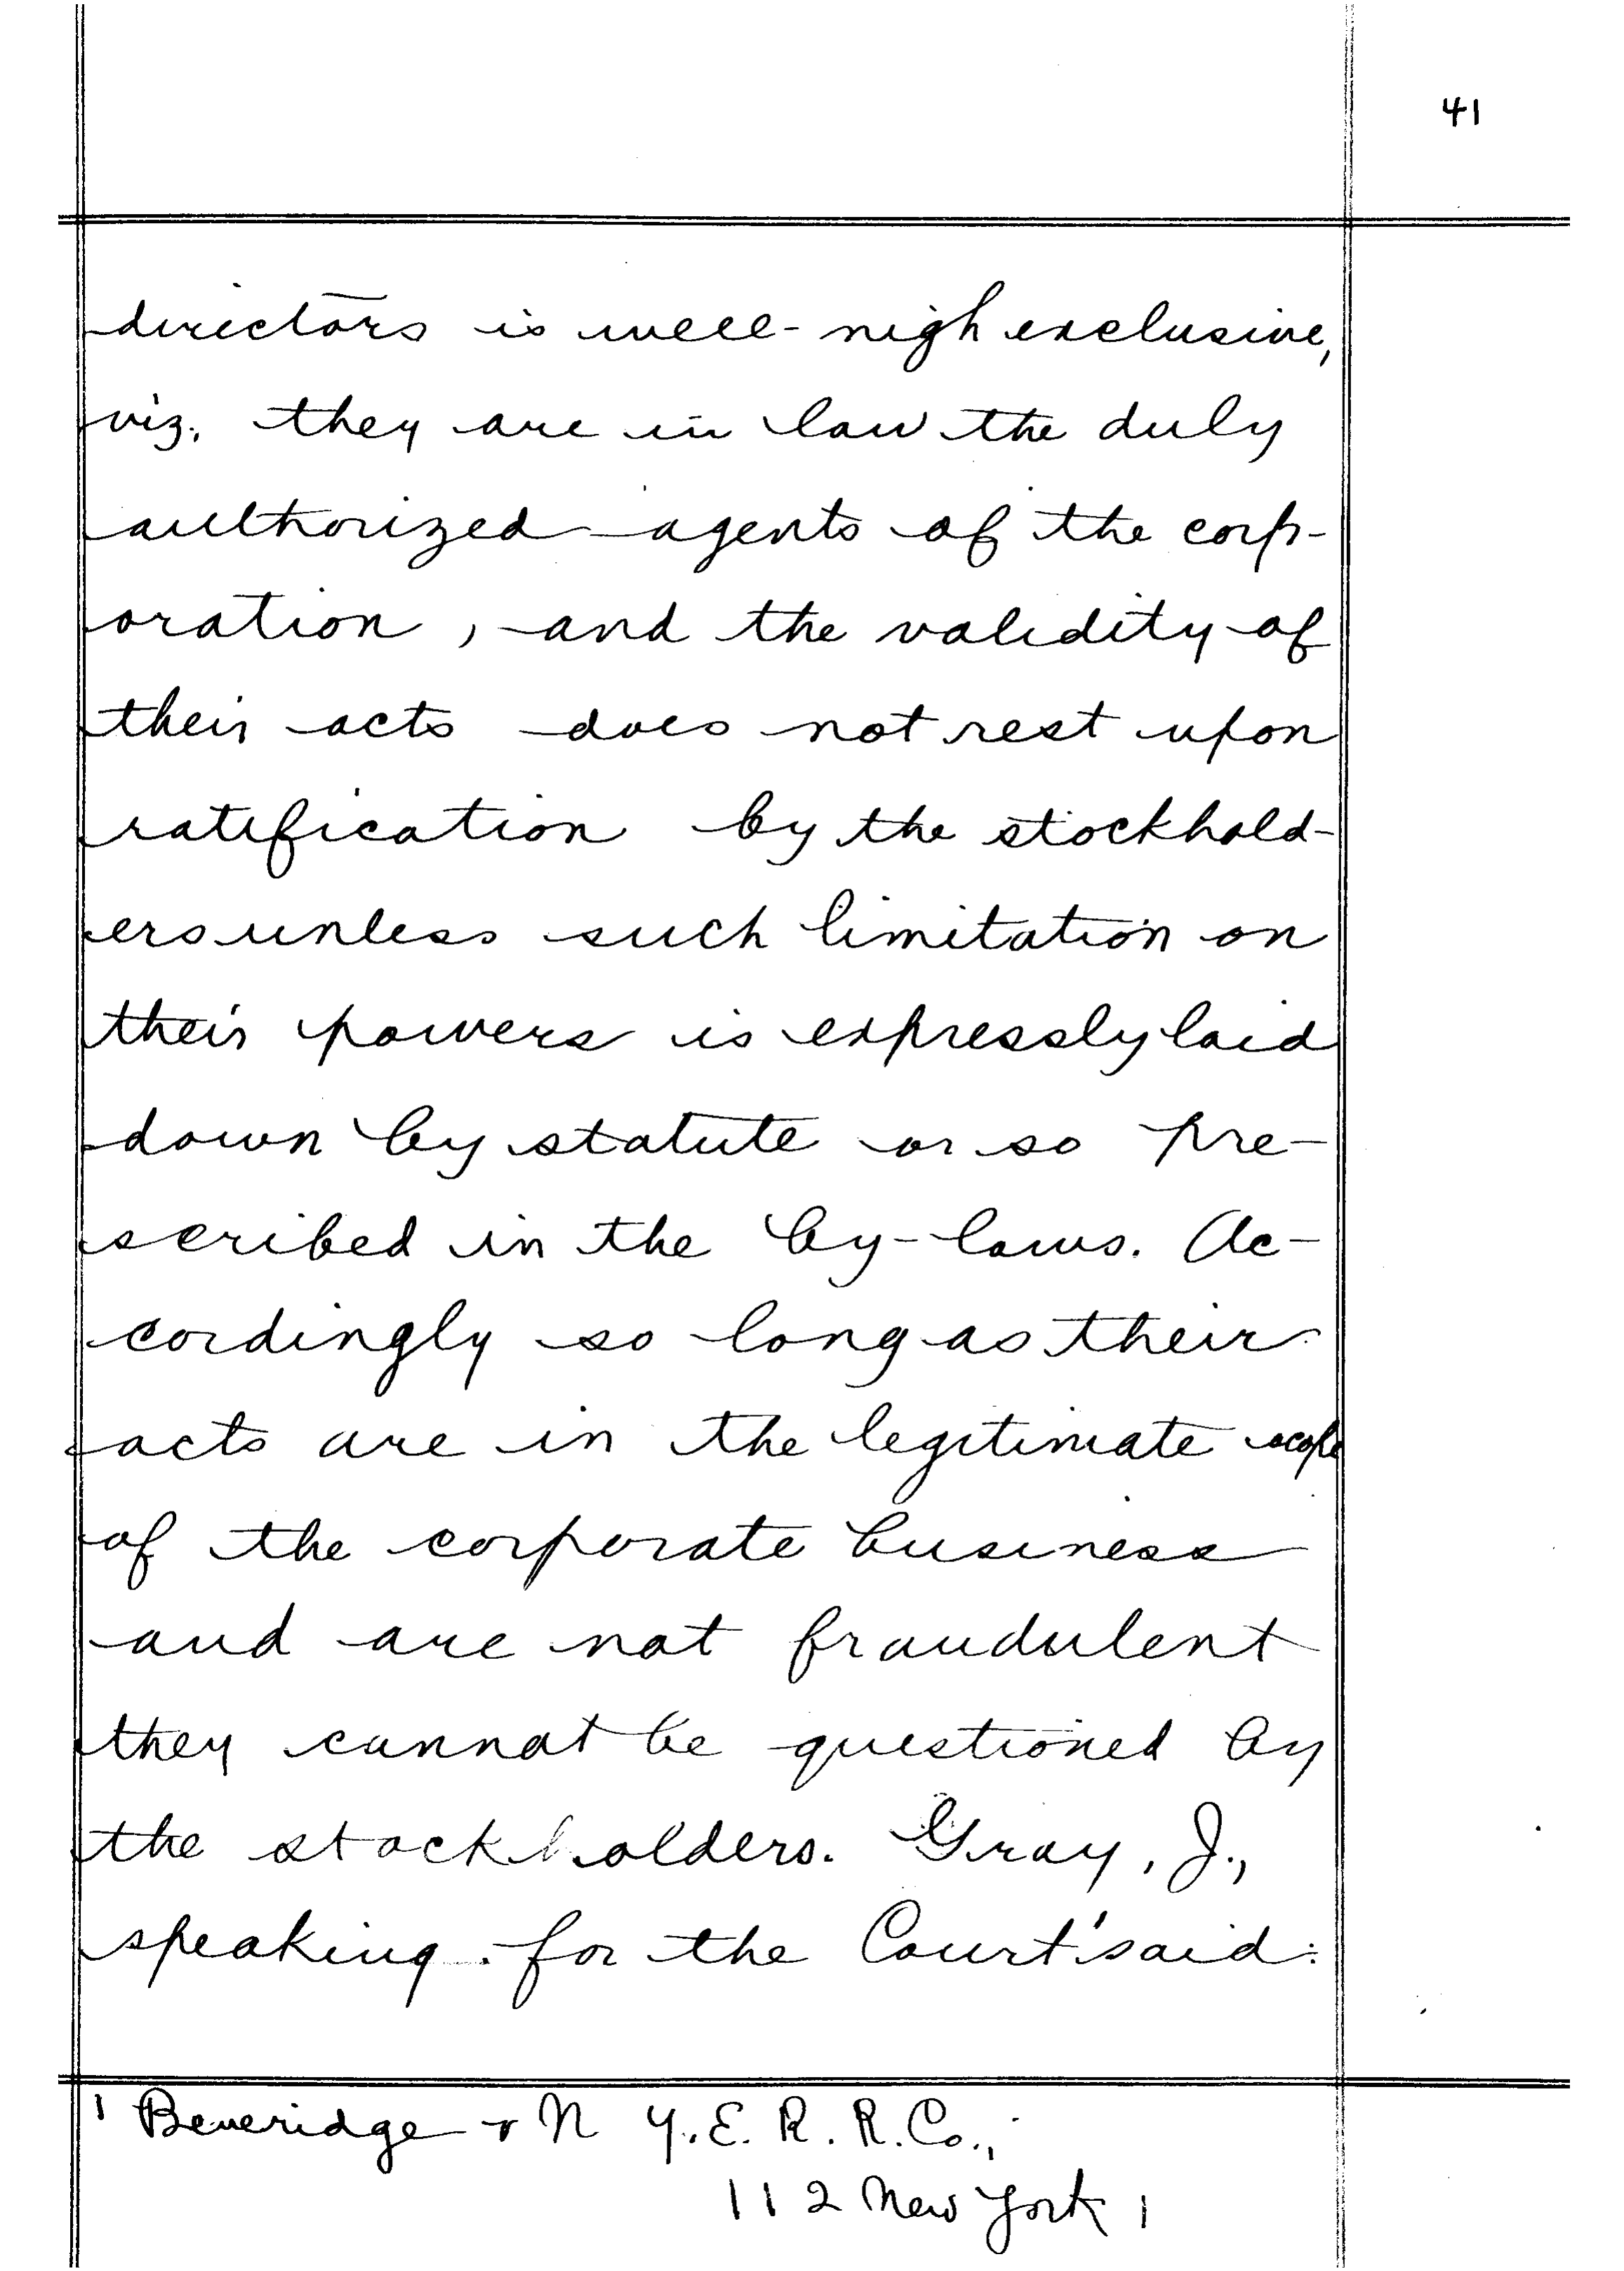 41
directors is well-nigh exclusive,
viz. they are in law the duly
authorized agents of the corp-
oration, and the validity of
their acts does not rest upon
ratification by the stockhold-
ers unless such limitation on
their powers is expressly laid
down by statute or so pre-
scribed in the by-laws. Ac-
cordingly so long as their
acts are in the legitimate scope
of the corporate business
and are not fraudulent
they cannot be questioned by
the stockholders. Gray, J.,
speaking for the Court¹ said:
¹ Beveridge v N Y. E. R. R. Co.,
112 New York 1